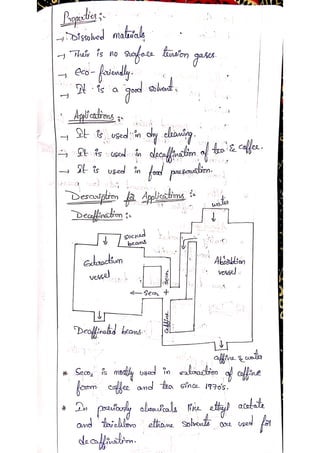 Properties :-
→ Dissolved materials
→ Their is no surface tension gases.
→ eco-friendly.
→ It is a good solvent.
Applications :-
→ It is used in dry cleaning.
→ It is used in decaffination of tea & coffee.
→ It is used in food preservation.
Description for Applications :-
Decaffination :-
water
soaked
beams
Extraction
vessel
Absorbtion
vessel
Scco₂
← Scco₂ +
caffine
Decaffinated beams
caffine & water
* Scco₂ is mostly used in extraction of caffine
from coffee and tea since 1970's.
* In previously chemicals like ethyl acetate
and trichloro ethane solvents are used for
decaffination.